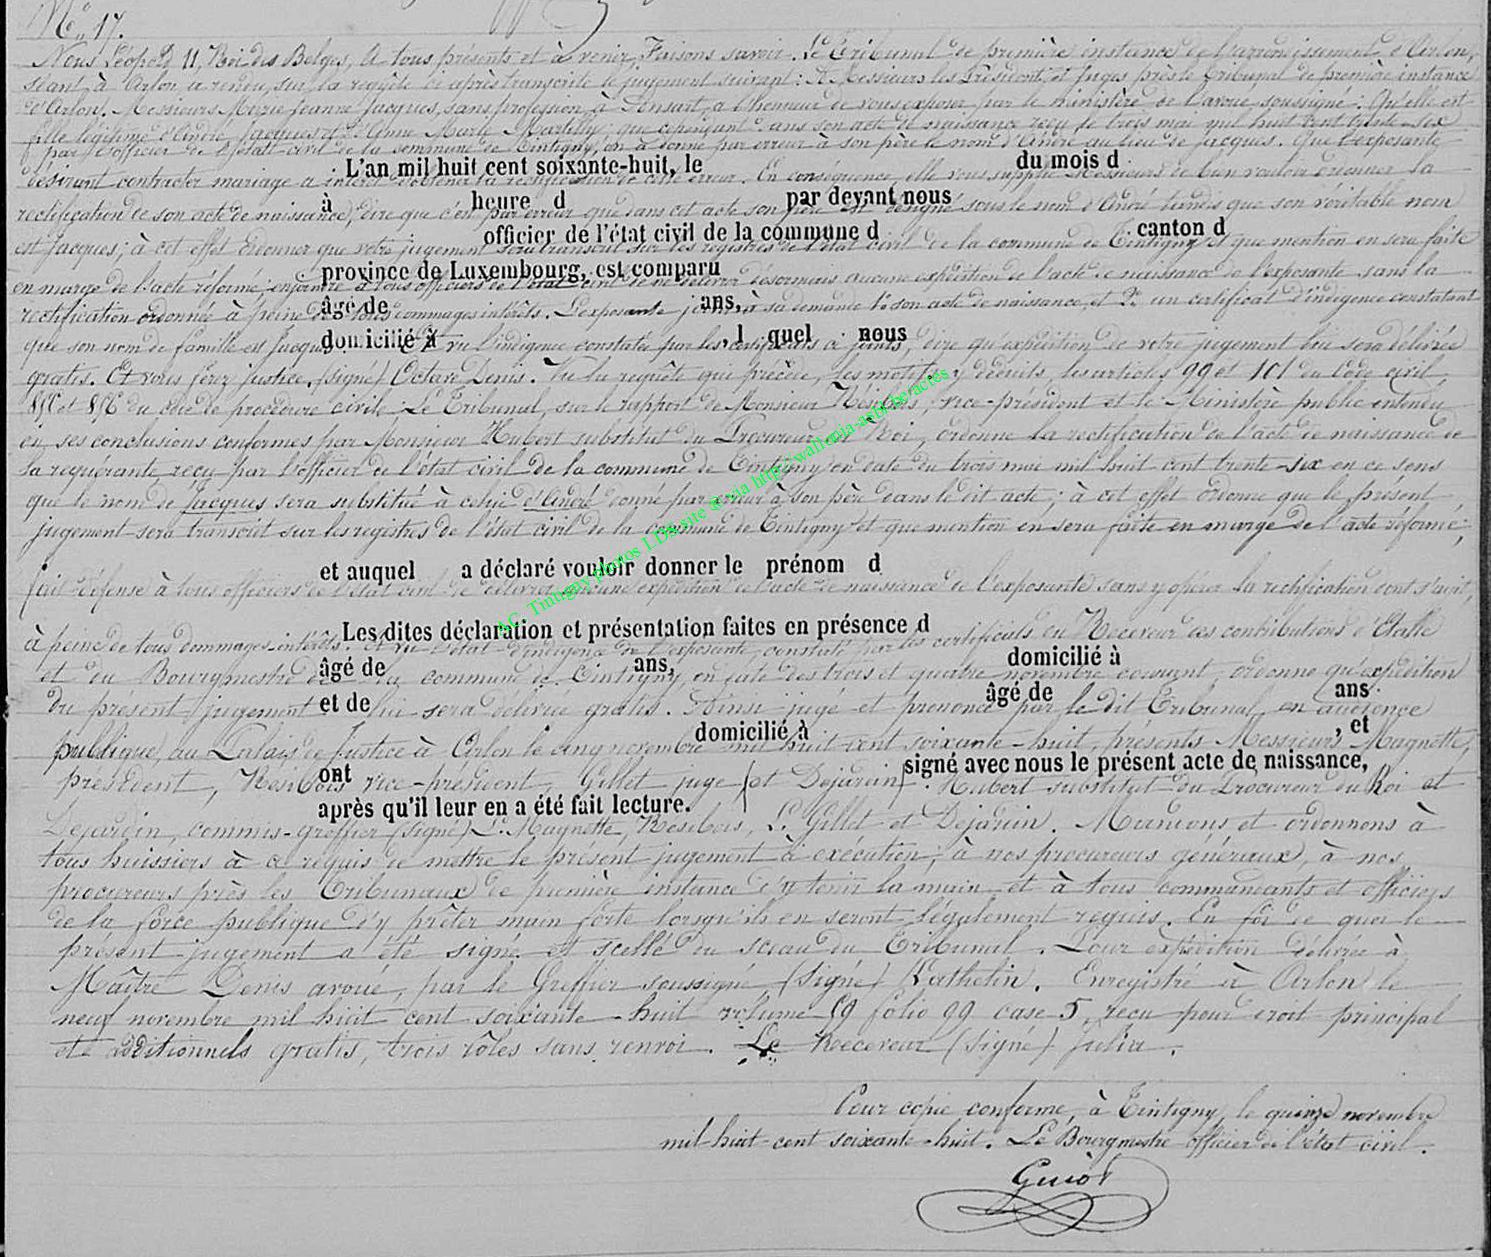 N° 17.
Nous Léopold II, Roi des Belges, A tous présents et à venir Faisons savoir. Le Tribunal de première instance de l'arrondissement d'Arlon,
séant à Arlon a rendu, sur la requête ci après transcrite le jugement suivant : A Messieurs les Président, et Juges près le tribunal de première instance
d'Arlon. Messieurs Marie Jeanne Jacques, sans profession, à Ansart, a l'honneur de vous exposer par le ministère de l'avoué soussigné : Qu'elle est
fille légitime d'André Jacques et d'Anne Marie Martilly ; que cependant dans son acte de naissance reçu le trois mai mil huit cent trente-six
par l'officier de l'état civil de la commune de Tintigny, on a donné par erreur à son père le nom d'André au lieu de Jacques. Que l'exposante
L'an mil huit cent soixante-huit, le du mois d
désirant contracter mariage a intérêt d'obtenir la rectification de cette erreur. En conséquence, elle vous supplie Messieurs de bien vouloir ordonner la
à heure d par devant nous
rectification de son acte de naissance, dire que c'est par erreur que dans cet acte son père est désigné sous le nom d'André tandis que son véritable nom
officier de l'état civil de la commune d canton d
est Jacques ; à cet effet ordonner que votre jugement sera transcrit sur les registres de l'état civil de la commune de Tintigny et que mention en sera faite
province de Luxembourg, est comparu
en marge de l'acte réformé ; enjoindre à tous officiers de l'état civil de ne délivrer désormais aucune expédition de l'acte de naissance de l'exposante sans la
âgé de ans,
rectification ordonnée à peine de tous dommages intérêts. L'exposante joint à sa demande 1° son acte de naissance et 2° un certificat d'indigence constatant
domicilié à , l quel nous
que son nom de famille est Jacques. Et vu l'indigence constatée par les certificats ci joints, dire qu'expédition de votre jugement lui sera délivrée
gratis. Et vous ferez justice. (signé) Octave Denis. Vu la requête qui précède, les motifs y déduits, les articles 99 et 101 du Code civil
et du code de procédure civile. Le Tribunal, sur le rapport de Monsieur Résibois, vice-président et le Ministère public entendu
en ses conclusions conformes par Monsieur Hubert substitut du Procureur du Roi, ordonne la rectification de l'acte de naissance de
la requérante, reçu par l'officier de l'état civil de la commune de Tintigny en date du trois mai mil huit cent trente-six en ce sens
que le nom de Jacques sera substitué à celui d'André donné par erreur à son père dans le dit acte ; à cet effet ordonne que le présent
jugement sera transcrit sur les registres de l'état civil de la commune de Tintigny et que mention en sera faite en marge de l'acte réformé ;
et auquel a déclaré vouloir donner le prénom d
fait défense à tous officiers de l'état civil de délivrer aucune expédition de l'acte de naissance de l'exposante sans y opérer la rectification dont s'agit,
Les dites déclaration et présentation faites en présence d
à peine de tous dommages-intérêts. Et vu l'état d'indigence de l'exposante constaté par les certificats du Receveur des contributions d'Etalle
âgé de ans, domicilié à
et du Bourgmestre de la commune de Tintigny, en date des trois et quatre novembre courant, ordonne qu'expédition
et de âgé de ans
du présent jugement lui sera délivrée gratis. Ainsi jugé et prononcé par le dit Tribunal en audience
domicilié à , et
publique, au Palais de Justice à Arlon le cinq novembre mil huit cent soixante-huit, présents Messieurs Magnette,
ont signé avec nous le présent acte de naissance,
président, Résibois vice-président, Gillet juge (et Dejardin). Hubert substitut du Procureur du Roi et
après qu'il leur en a été fait lecture.
Dejardin, commis-greffier (signé) L. Magnette, Résibois, L. Gillet et Dejardin. Mandons et ordonnons à
tous huissiers à ce requis de mettre le présent jugement à exécution ; à nos procureurs généraux, à nos
procureurs près les Tribunaux de première instance d'y tenir la main et à tous commandants et officiers
de la force publique d'y prêter main forte lorsqu'ils en seront légalement requis. En foi de quoi le
présent jugement a été signé et scellé du sceau du Tribunal. Pour expédition délivrée à
Maître Denis avoué, par le Greffier soussigné (signé) Enregistré à Arlon le
neuf novembre mil huit cent soixante-huit volume 59 folio 99 case 5, reçu pour droit principal
et additionnels gratis, trois rôles sans renvoi. Le Receveur (signé) Julia.
Pour copie conforme, à Tintigny, le quinze novembre
mil-huit-cent soixante-huit. Le Bourgmestre officier de l'état civil.
Guiot
AC. Tintigny photos LDB site a via http://wallonia-asbl.be/actes